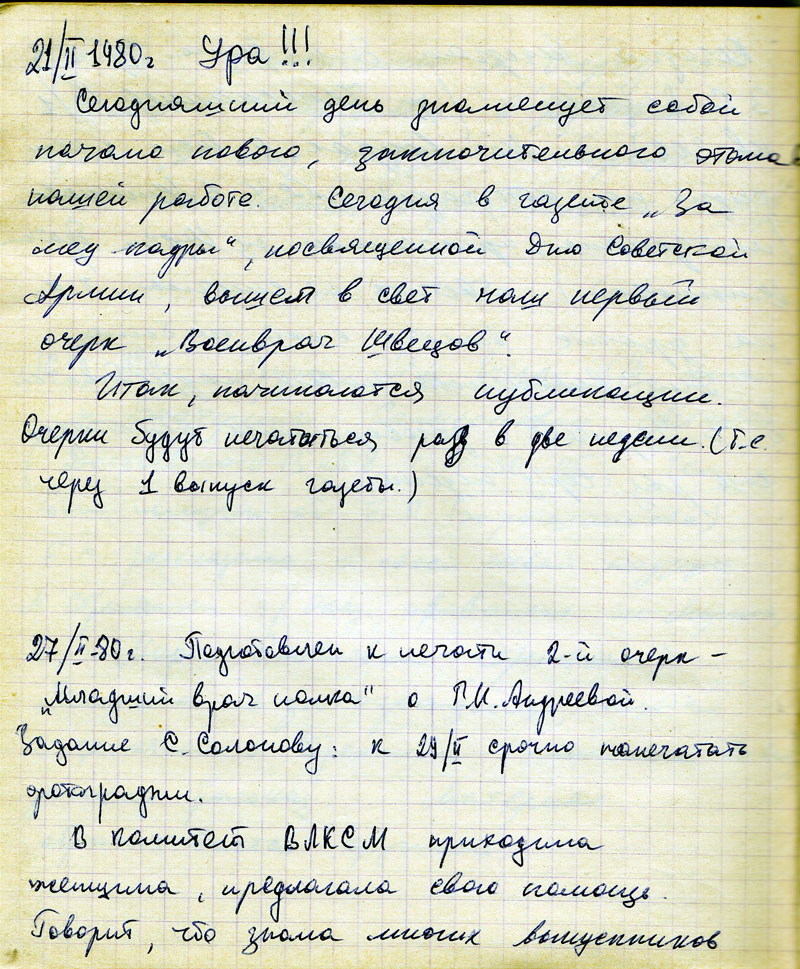 21/II 1980г Ура!!!
Сегодняшний день знаменует собой
начало нового, заключительного этапа
нашей работе. Сегодня в газете „За
мед кадры“, посвященной Дню Советской
Армии, вышел в свет наш первый
очерк „Военврач Швецов“.
Итак, начинаются публикации.
Очерки будут печататься раз в две недели. (т.е.
через 1 выпуск газеты.)
27/II-80г. Подготовлен к печати 2-й очерк –
„Младший врач полка“ о Г.И. Андреевой.
Задание С. Солонову: к 29/II срочно напечатать
фотографии.
В комитет ВЛКСМ приходила
женщина, предлагала свою помощь.
Говорит, что знала многих выпускников